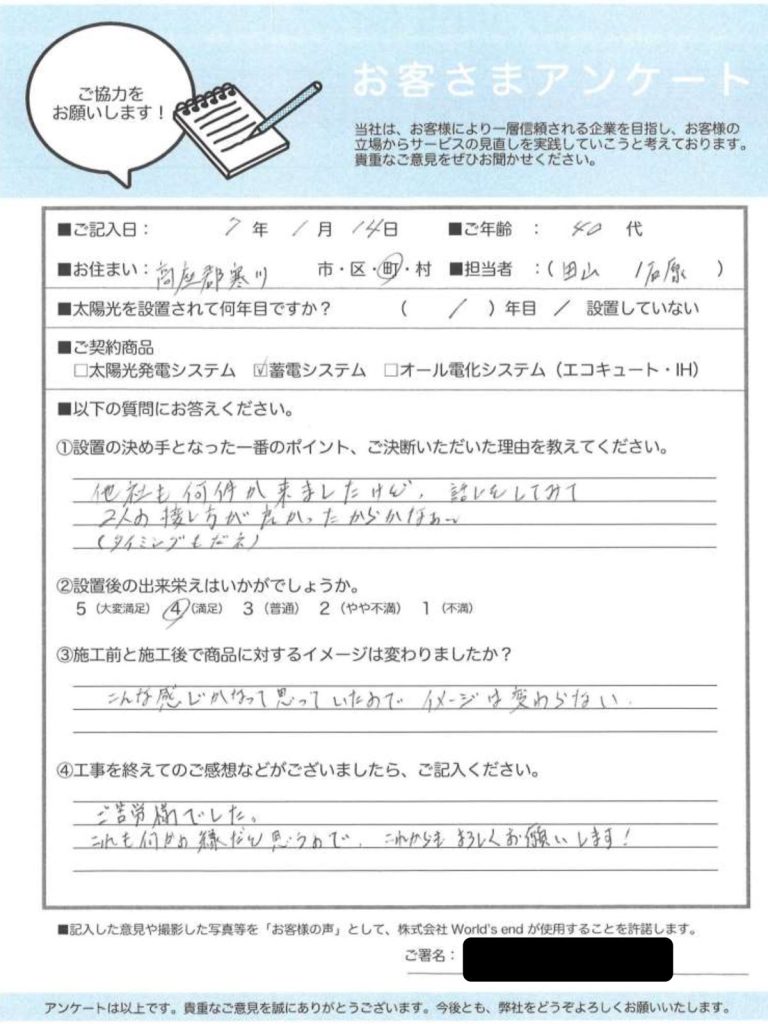 ご協力を
お願いします！
お客さまアンケート
当社は、お客様により一層信頼される企業を目指し、お客様の
立場からサービスの見直しを実践していこうと考えております。
貴重なご意見をぜひお聞かせください。
■ご記入日： 7 年 1 月 14 日 ■ご年齢 ： 40 代
■お住まい：高座郡寒川 市・区・町・村 ■担当者 ：( 田山 / 石原 )
■太陽光を設置されて何年目ですか？ ( / ) 年目 / 設置していない
■ご契約商品
□太陽光発電システム ☑蓄電システム □オール電化システム（エコキュート・IH）
■以下の質問にお答えください。
①設置の決め手となった一番のポイント、ご決断いただいた理由を教えてください。
他社も何件か来ましたけど、話しをしてみて
2人の接し方が良かったからかなぁ〜
(タイミングもだネ)
②設置後の出来栄えはいかがでしょうか。
5（大変満足） 4（満足） 3（普通） 2（やや不満） 1（不満）
③施工前と施工後で商品に対するイメージは変わりましたか？
こんな感じかなって思っていたので イメージは変わらない.
④工事を終えてのご感想などがございましたら、ご記入ください。
ご苦労様でした。
これも何かの縁だと思うので、これからもよろしくお願いします！
■記入した意見や撮影した写真等を「お客様の声」として、株式会社 World's end が使用することを許諾します。
ご署名：
アンケートは以上です。貴重なご意見を誠にありがとうございます。今後とも、弊社をどうぞよろしくお願いいたします。